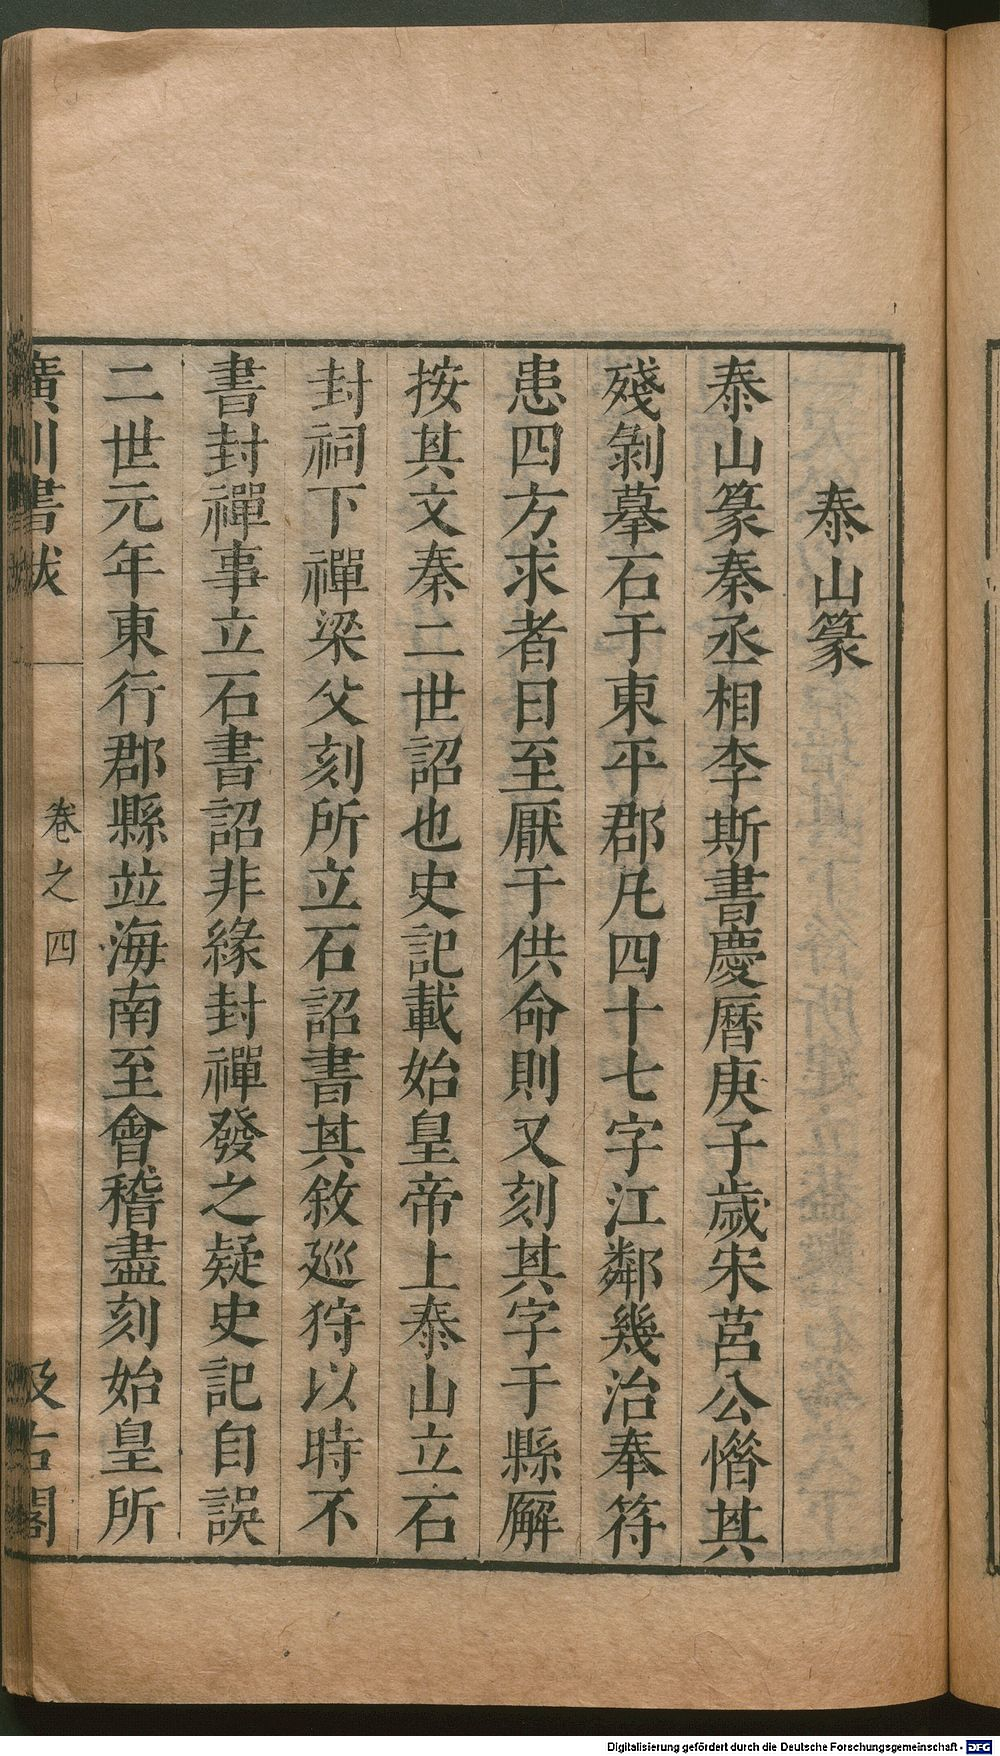 泰山篆
泰山篆秦丞相李斯書慶曆庚子歲宋莒公惜其
殘剝摹石于東平郡凡四十七字江鄰幾治奉符
患四方求者日至厭于供命則又刻其字于縣廨
按其文秦二世詔也史記載始皇帝上泰山立石
封祠下禪梁父刻所立石詔書其敘巡狩以時不
書封禪事立石書詔非緣封禪發之疑史記自誤
二世元年東行郡縣竝海南至會稽盡刻始皇所
廣川書跋
卷之四
汲古閣
Digitalisierung gefördert durch die Deutsche Forschungsgemeinschaft - DFG